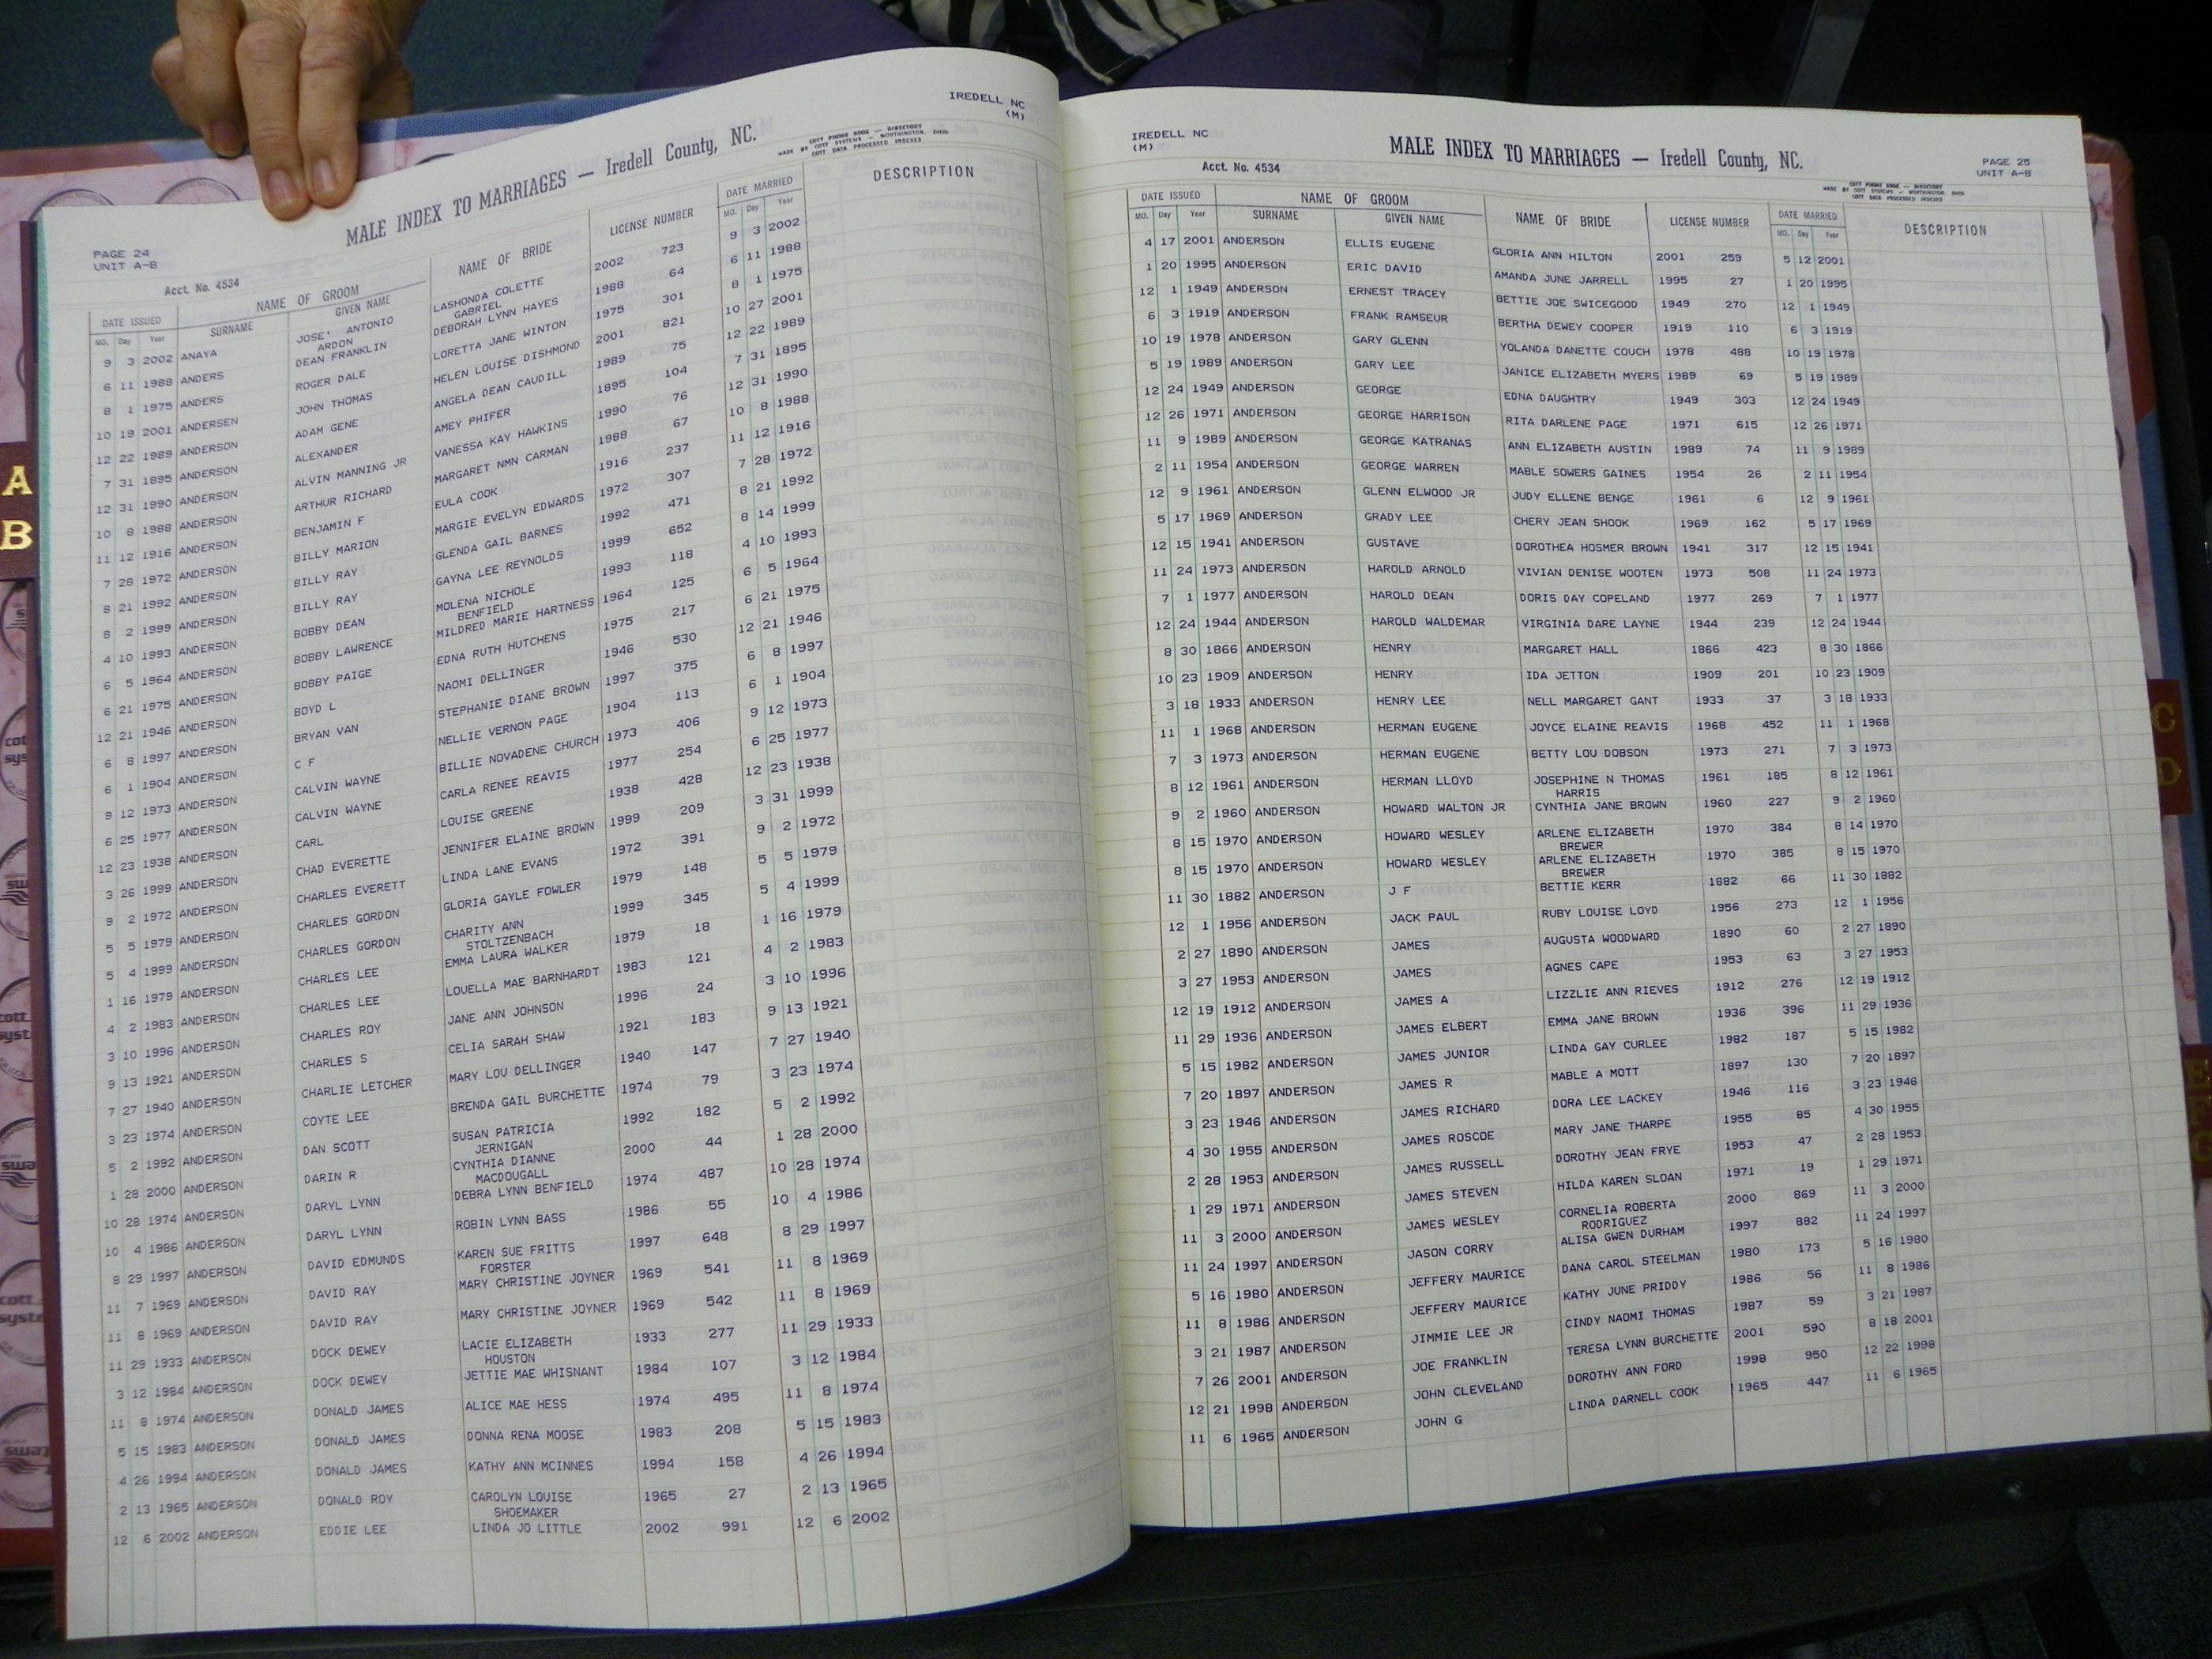 IREDELL NC
(M)
MALE INDEX TO MARRIAGES — Iredell County, NC.
COTT PHONE BOOK — DIRECTORY
MADE BY COTT SYSTEMS — WORTHINGTON, OHIO
COTT DATA PROCESSED INDEXES
PAGE 24
UNIT A-B
Acct. No. 4534
DATE ISSUED NAME OF GROOM NAME OF BRIDE LICENSE NUMBER DATE MARRIED DESCRIPTION
MO. Day Year SURNAME GIVEN NAME MO. Day Year
9 3 2002 ANAYA JOSE' ANTONIO LASHONDA COLETTE 2002 723 9 3 2002
ARDON GABRIEL
6 11 1988 ANDERS DEAN FRANKLIN DEBORAH LYNN HAYES 1988 64 6 11 1988
8 1 1975 ANDERS ROGER DALE LORETTA JANE WINTON 1975 301 8 1 1975
10 19 2001 ANDERSEN JOHN THOMAS HELEN LOUISE DISHMOND 2001 821 10 27 2001
12 22 1989 ANDERSON ADAM GENE ANGELA DEAN CAUDILL 1989 75 12 22 1989
7 31 1895 ANDERSON ALEXANDER AMEY PHIFER 1895 104 7 31 1895
12 31 1990 ANDERSON ALVIN MANNING JR VANESSA KAY HAWKINS 1990 76 12 31 1990
10 8 1988 ANDERSON ARTHUR RICHARD MARGARET NMN CARMAN 1988 67 10 8 1988
11 12 1916 ANDERSON BENJAMIN F EULA COOK 1916 237 11 12 1916
7 28 1972 ANDERSON BILLY MARION MARGIE EVELYN EDWARDS 1972 307 7 28 1972
8 21 1992 ANDERSON BILLY RAY GLENDA GAIL BARNES 1992 471 8 21 1992
8 2 1999 ANDERSON BILLY RAY GAYNA LEE REYNOLDS 1999 652 8 14 1999
4 10 1993 ANDERSON BOBBY DEAN MOLENA NICHOLE 1993 118 4 10 1993
BENFIELD
6 5 1964 ANDERSON BOBBY LAWRENCE MILDRED MARIE HARTNESS 1964 125 6 5 1964
6 21 1975 ANDERSON BOBBY PAIGE EDNA RUTH HUTCHENS 1975 217 6 21 1975
12 21 1946 ANDERSON BOYD L NAOMI DELLINGER 1946 530 12 21 1946
6 8 1997 ANDERSON BRYAN VAN STEPHANIE DIANE BROWN 1997 375 6 8 1997
6 1 1904 ANDERSON C F NELLIE VERNON PAGE 1904 113 6 1 1904
9 12 1973 ANDERSON CALVIN WAYNE BILLIE NOVADENE CHURCH 1973 406 9 12 1973
6 25 1977 ANDERSON CALVIN WAYNE CARLA RENEE REAVIS 1977 254 6 25 1977
12 23 1938 ANDERSON CARL LOUISE GREENE 1938 428 12 23 1938
3 26 1999 ANDERSON CHAD EVERETTE JENNIFER ELAINE BROWN 1999 209 3 31 1999
9 2 1972 ANDERSON CHARLES EVERETT LINDA LANE EVANS 1972 391 9 2 1972
5 5 1979 ANDERSON CHARLES GORDON GLORIA GAYLE FOWLER 1979 148 5 5 1979
5 4 1999 ANDERSON CHARLES GORDON CHARITY ANN 1999 345 5 4 1999
STOLTZENBACH
1 16 1979 ANDERSON CHARLES LEE EMMA LAURA WALKER 1979 18 1 16 1979
4 2 1983 ANDERSON CHARLES LEE LOUELLA MAE BARNHARDT 1983 121 4 2 1983
3 10 1996 ANDERSON CHARLES ROY JANE ANN JOHNSON 1996 24 3 10 1996
9 13 1921 ANDERSON CHARLES S CELIA SARAH SHAW 1921 183 9 13 1921
7 27 1940 ANDERSON CHARLIE LETCHER MARY LOU DELLINGER 1940 147 7 27 1940
3 23 1974 ANDERSON COYTE LEE BRENDA GAIL BURCHETTE 1974 79 3 23 1974
5 2 1992 ANDERSON DAN SCOTT SUSAN PATRICIA 1992 182 5 2 1992
JERNIGAN
1 28 2000 ANDERSON DARIN R CYNTHIA DIANNE 2000 44 1 28 2000
MACDOUGALL
10 28 1974 ANDERSON DARYL LYNN DEBRA LYNN BENFIELD 1974 487 10 28 1974
10 4 1986 ANDERSON DARYL LYNN ROBIN LYNN BASS 1986 55 10 4 1986
8 29 1997 ANDERSON DAVID EDMUNDS KAREN SUE FRITTS 1997 648 8 29 1997
FORSTER
11 7 1969 ANDERSON DAVID RAY MARY CHRISTINE JOYNER 1969 541 11 8 1969
11 8 1969 ANDERSON DAVID RAY MARY CHRISTINE JOYNER 1969 542 11 8 1969
11 29 1933 ANDERSON DOCK DEWEY LACIE ELIZABETH 1933 277 11 29 1933
HOUSTON
3 12 1984 ANDERSON DOCK DEWEY JETTIE MAE WHISNANT 1984 107 3 12 1984
11 8 1974 ANDERSON DONALD JAMES ALICE MAE HESS 1974 495 11 8 1974
5 15 1983 ANDERSON DONALD JAMES DONNA RENA MOOSE 1983 208 5 15 1983
4 26 1994 ANDERSON DONALD JAMES KATHY ANN MCINNES 1994 158 4 26 1994
2 13 1965 ANDERSON DONALD ROY CAROLYN LOUISE 1965 27 2 13 1965
SHOEMAKER
12 6 2002 ANDERSON EDDIE LEE LINDA JO LITTLE 2002 991 12 6 2002
IREDELL NC
(M)
MALE INDEX TO MARRIAGES — Iredell County, NC.
PAGE 25
UNIT A-B
Acct. No. 4534
COTT PHONE BOOK — DIRECTORY
MADE BY COTT SYSTEMS — WORTHINGTON, OHIO
COTT DATA PROCESSED INDEXES
DATE ISSUED NAME OF GROOM NAME OF BRIDE LICENSE NUMBER DATE MARRIED DESCRIPTION
MO. Day Year SURNAME GIVEN NAME MO. Day Year
4 17 2001 ANDERSON ELLIS EUGENE GLORIA ANN HILTON 2001 259 5 12 2001
1 20 1995 ANDERSON ERIC DAVID AMANDA JUNE JARRELL 1995 27 1 20 1995
12 1 1949 ANDERSON ERNEST TRACEY BETTIE JOE SWICEGOOD 1949 270 12 1 1949
6 3 1919 ANDERSON FRANK RAMSEUR BERTHA DEWEY COOPER 1919 110 6 3 1919
10 19 1978 ANDERSON GARY GLENN YOLANDA DANETTE COUCH 1978 488 10 19 1978
5 19 1989 ANDERSON GARY LEE JANICE ELIZABETH MYERS 1989 69 5 19 1989
12 24 1949 ANDERSON GEORGE EDNA DAUGHTRY 1949 303 12 24 1949
12 26 1971 ANDERSON GEORGE HARRISON RITA DARLENE PAGE 1971 615 12 26 1971
11 9 1989 ANDERSON GEORGE KATRANAS ANN ELIZABETH AUSTIN 1989 74 11 9 1989
2 11 1954 ANDERSON GEORGE WARREN MABLE SOWERS GAINES 1954 26 2 11 1954
12 9 1961 ANDERSON GLENN ELWOOD JR JUDY ELLENE BENGE 1961 6 12 9 1961
5 17 1969 ANDERSON GRADY LEE CHERY JEAN SHOOK 1969 162 5 17 1969
12 15 1941 ANDERSON GUSTAVE DOROTHEA HOSMER BROWN 1941 317 12 15 1941
11 24 1973 ANDERSON HAROLD ARNOLD VIVIAN DENISE WOOTEN 1973 508 11 24 1973
7 1 1977 ANDERSON HAROLD DEAN DORIS DAY COPELAND 1977 269 7 1 1977
12 24 1944 ANDERSON HAROLD WALDEMAR VIRGINIA DARE LAYNE 1944 239 12 24 1944
8 30 1866 ANDERSON HENRY MARGARET HALL 1866 423 8 30 1866
10 23 1909 ANDERSON HENRY IDA JETTON 1909 201 10 23 1909
3 18 1933 ANDERSON HENRY LEE NELL MARGARET GANT 1933 37 3 18 1933
11 1 1968 ANDERSON HERMAN EUGENE JOYCE ELAINE REAVIS 1968 452 11 1 1968
7 3 1973 ANDERSON HERMAN EUGENE BETTY LOU DOBSON 1973 271 7 3 1973
8 12 1961 ANDERSON HERMAN LLOYD JOSEPHINE N THOMAS 1961 185 8 12 1961
HARRIS
9 2 1960 ANDERSON HOWARD WALTON JR CYNTHIA JANE BROWN 1960 227 9 2 1960
8 15 1970 ANDERSON HOWARD WESLEY ARLENE ELIZABETH 1970 384 8 14 1970
BREWER
8 15 1970 ANDERSON HOWARD WESLEY ARLENE ELIZABETH 1970 385 8 15 1970
BREWER
11 30 1882 ANDERSON J F BETTIE KERR 1882 66 11 30 1882
12 1 1956 ANDERSON JACK PAUL RUBY LOUISE LOYD 1956 273 12 1 1956
2 27 1890 ANDERSON JAMES AUGUSTA WOODWARD 1890 60 2 27 1890
3 27 1953 ANDERSON JAMES AGNES CAPE 1953 63 3 27 1953
12 19 1912 ANDERSON JAMES A LIZZLIE ANN RIEVES 1912 276 12 19 1912
11 29 1936 ANDERSON JAMES ELBERT EMMA JANE BROWN 1936 396 11 29 1936
5 15 1982 ANDERSON JAMES JUNIOR LINDA GAY CURLEE 1982 187 5 15 1982
7 20 1897 ANDERSON JAMES R MABLE A MOTT 1897 130 7 20 1897
3 23 1946 ANDERSON JAMES RICHARD DORA LEE LACKEY 1946 116 3 23 1946
4 30 1955 ANDERSON JAMES ROSCOE MARY JANE THARPE 1955 85 4 30 1955
2 28 1953 ANDERSON JAMES RUSSELL DOROTHY JEAN FRYE 1953 47 2 28 1953
1 29 1971 ANDERSON JAMES STEVEN HILDA KAREN SLOAN 1971 19 1 29 1971
11 3 2000 ANDERSON JAMES WESLEY CORNELIA ROBERTA 2000 869 11 3 2000
RODRIGUEZ
11 24 1997 ANDERSON JASON CORRY ALISA GWEN DURHAM 1997 882 11 24 1997
5 16 1980 ANDERSON JEFFERY MAURICE DANA CAROL STEELMAN 1980 173 5 16 1980
11 8 1986 ANDERSON JEFFERY MAURICE KATHY JUNE PRIDDY 1986 56 11 8 1986
3 21 1987 ANDERSON JIMMIE LEE JR CINDY NAOMI THOMAS 1987 59 3 21 1987
7 26 2001 ANDERSON JOE FRANKLIN TERESA LYNN BURCHETTE 2001 590 8 18 2001
12 21 1998 ANDERSON JOHN CLEVELAND DOROTHY ANN FORD 1998 950 12 22 1998
11 6 1965 ANDERSON JOHN G LINDA DARNELL COOK 1965 447 11 6 1965
A
B
C
D